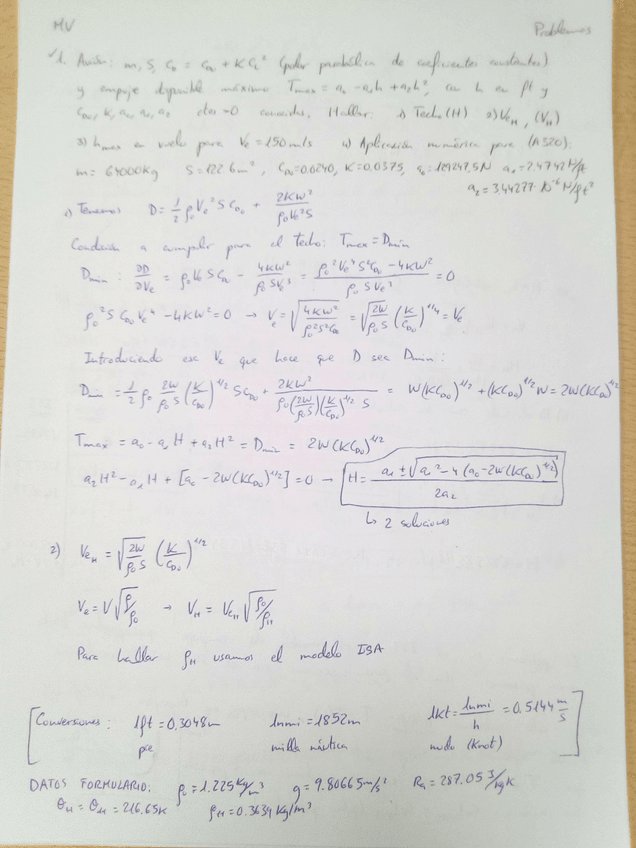 MV Problemas
✓1. Avión: m, S, C_D = C_D0 + KC_L² (polar parabólica de coeficientes constantes)
y empuje disponible máximo T_max = a₀ - a₁h + a₂h², con h en ft y
C_D0, K, a₀, a₁, a₂ ctes >0 conocidas. Hallar: 1) Techo (H) 2) V_eH, (V_H)
3) h_max en vuelo para V_e = 150 m/s 4) Aplicación numérica para (A320):
m = 64000Kg S = 122.6m², C_D0 = 0.0240, K = 0.0375, a₀ = 129247,5N a₁ = 2.4742 N/ft
a₂ = 3.44277·10⁻⁶ N/ft²
1) Tenemos D = 1/2 ρ₀V_e²SC_D0 + 2KW²/ρ₀V_e²S
Condición a cumplir para el techo: T_max = D_min
D_min: ∂D/∂V_e = ρ₀V_eSC_D0 - 4KW²/ρ₀SV_e³ = (ρ₀²V_e⁴S²C_D0 - 4KW²)/ρ₀SV_e³ = 0
ρ₀²SC_D0V_e⁴ - 4KW² = 0 → V_e = √(4KW²/ρ₀²S²C_D0) = √(2W/ρ₀S) (K/C_D0)^1/4 = V_e
Introduciendo esa V_e que hace que D sea D_min:
D_min = 1/2 ρ₀ 2W/ρ₀S (K/C_D0)^1/2 SC_D0 + 2KW²/(ρ₀(2W/ρ₀S)(K/C_D0)^1/2 S) = W(KC_D0)^1/2 + (KC_D0)^1/2 W = 2W(KC_D0)^1/2
T_max = a₀ - a₁H + a₂H² = D_min = 2W(KC_D0)^1/2
a₂H² - a₁H + [a₀ - 2W(KC_D0)^1/2] = 0 → H = (a₁ ± √(a₁² - 4(a₀ - 2W(KC_D0)^1/2)))/2a₂
↳ 2 soluciones
2) V_eH = √(2W/ρ₀S) (K/C_D0)^1/2
V_e = V√(ρ/ρ₀) → V_H = V_eH √(ρ₀/ρ_H)
Para hallar ρ_H usamos el modelo ISA
[Conversiones: 1ft = 0.3048m 1nmi = 1852m 1kt = 1nmi/h = 0.5144 m/s]
pie milla náutica nudo (Knot)
DATOS FORMULARIO: ρ₀ = 1.225 Kg/m³ g = 9.80665 m/s² R_a = 287.05 J/kgK
θ_H = θ_11 = 216.65K ρ_11 = 0.3634 Kg/m³